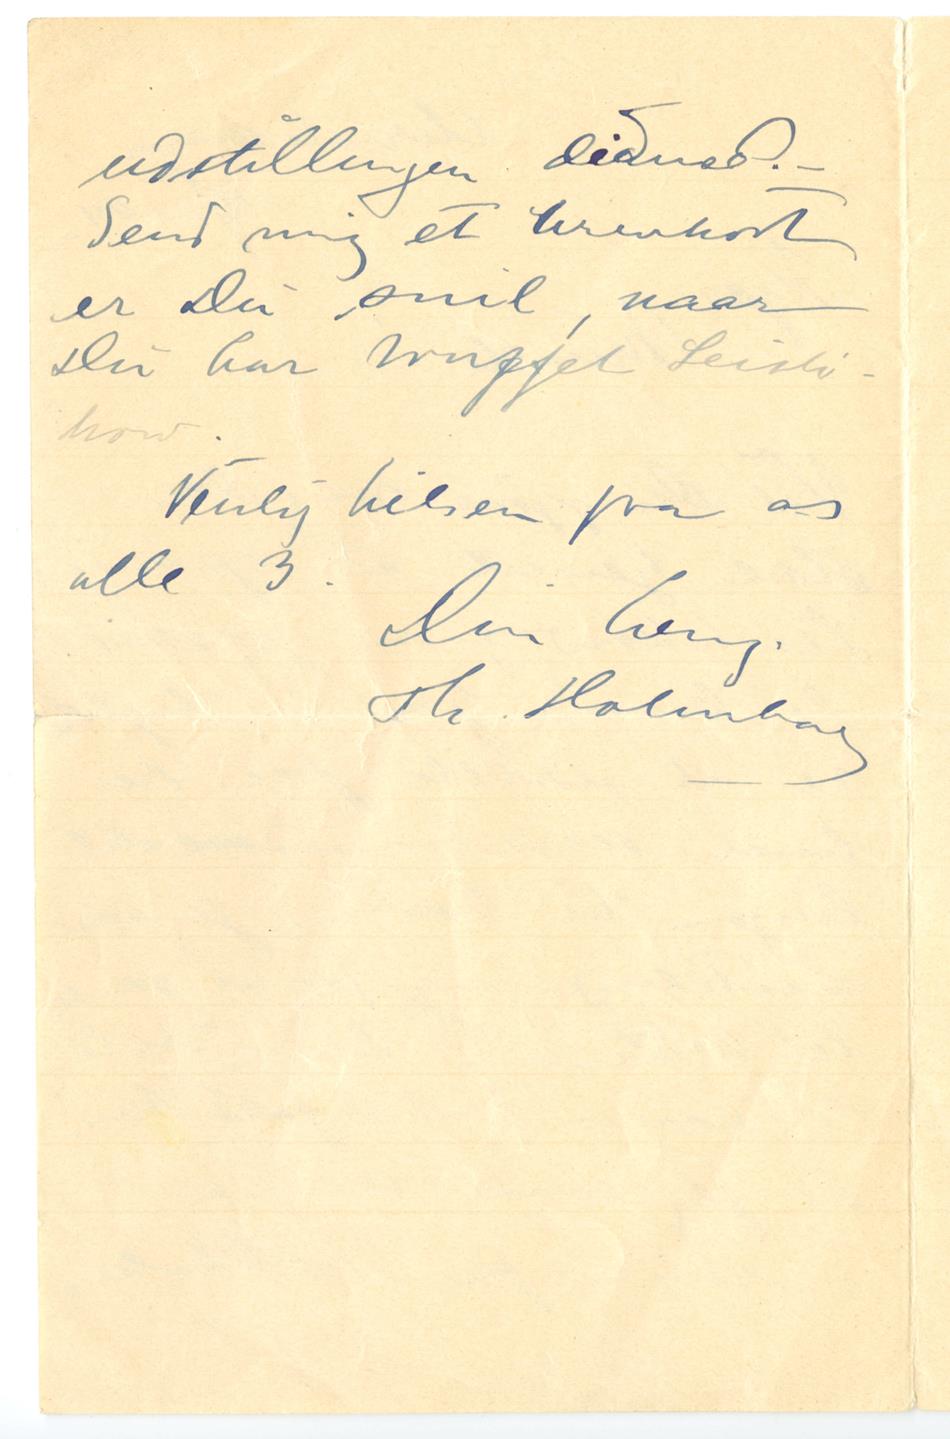 udstillingen didned.—
Send mig et brevkort
er Du snil, naar
Du har truffet Leisti-
kow.
Venlig hilsen fra os
alle 3.
Din heng.
Th. Holmboe